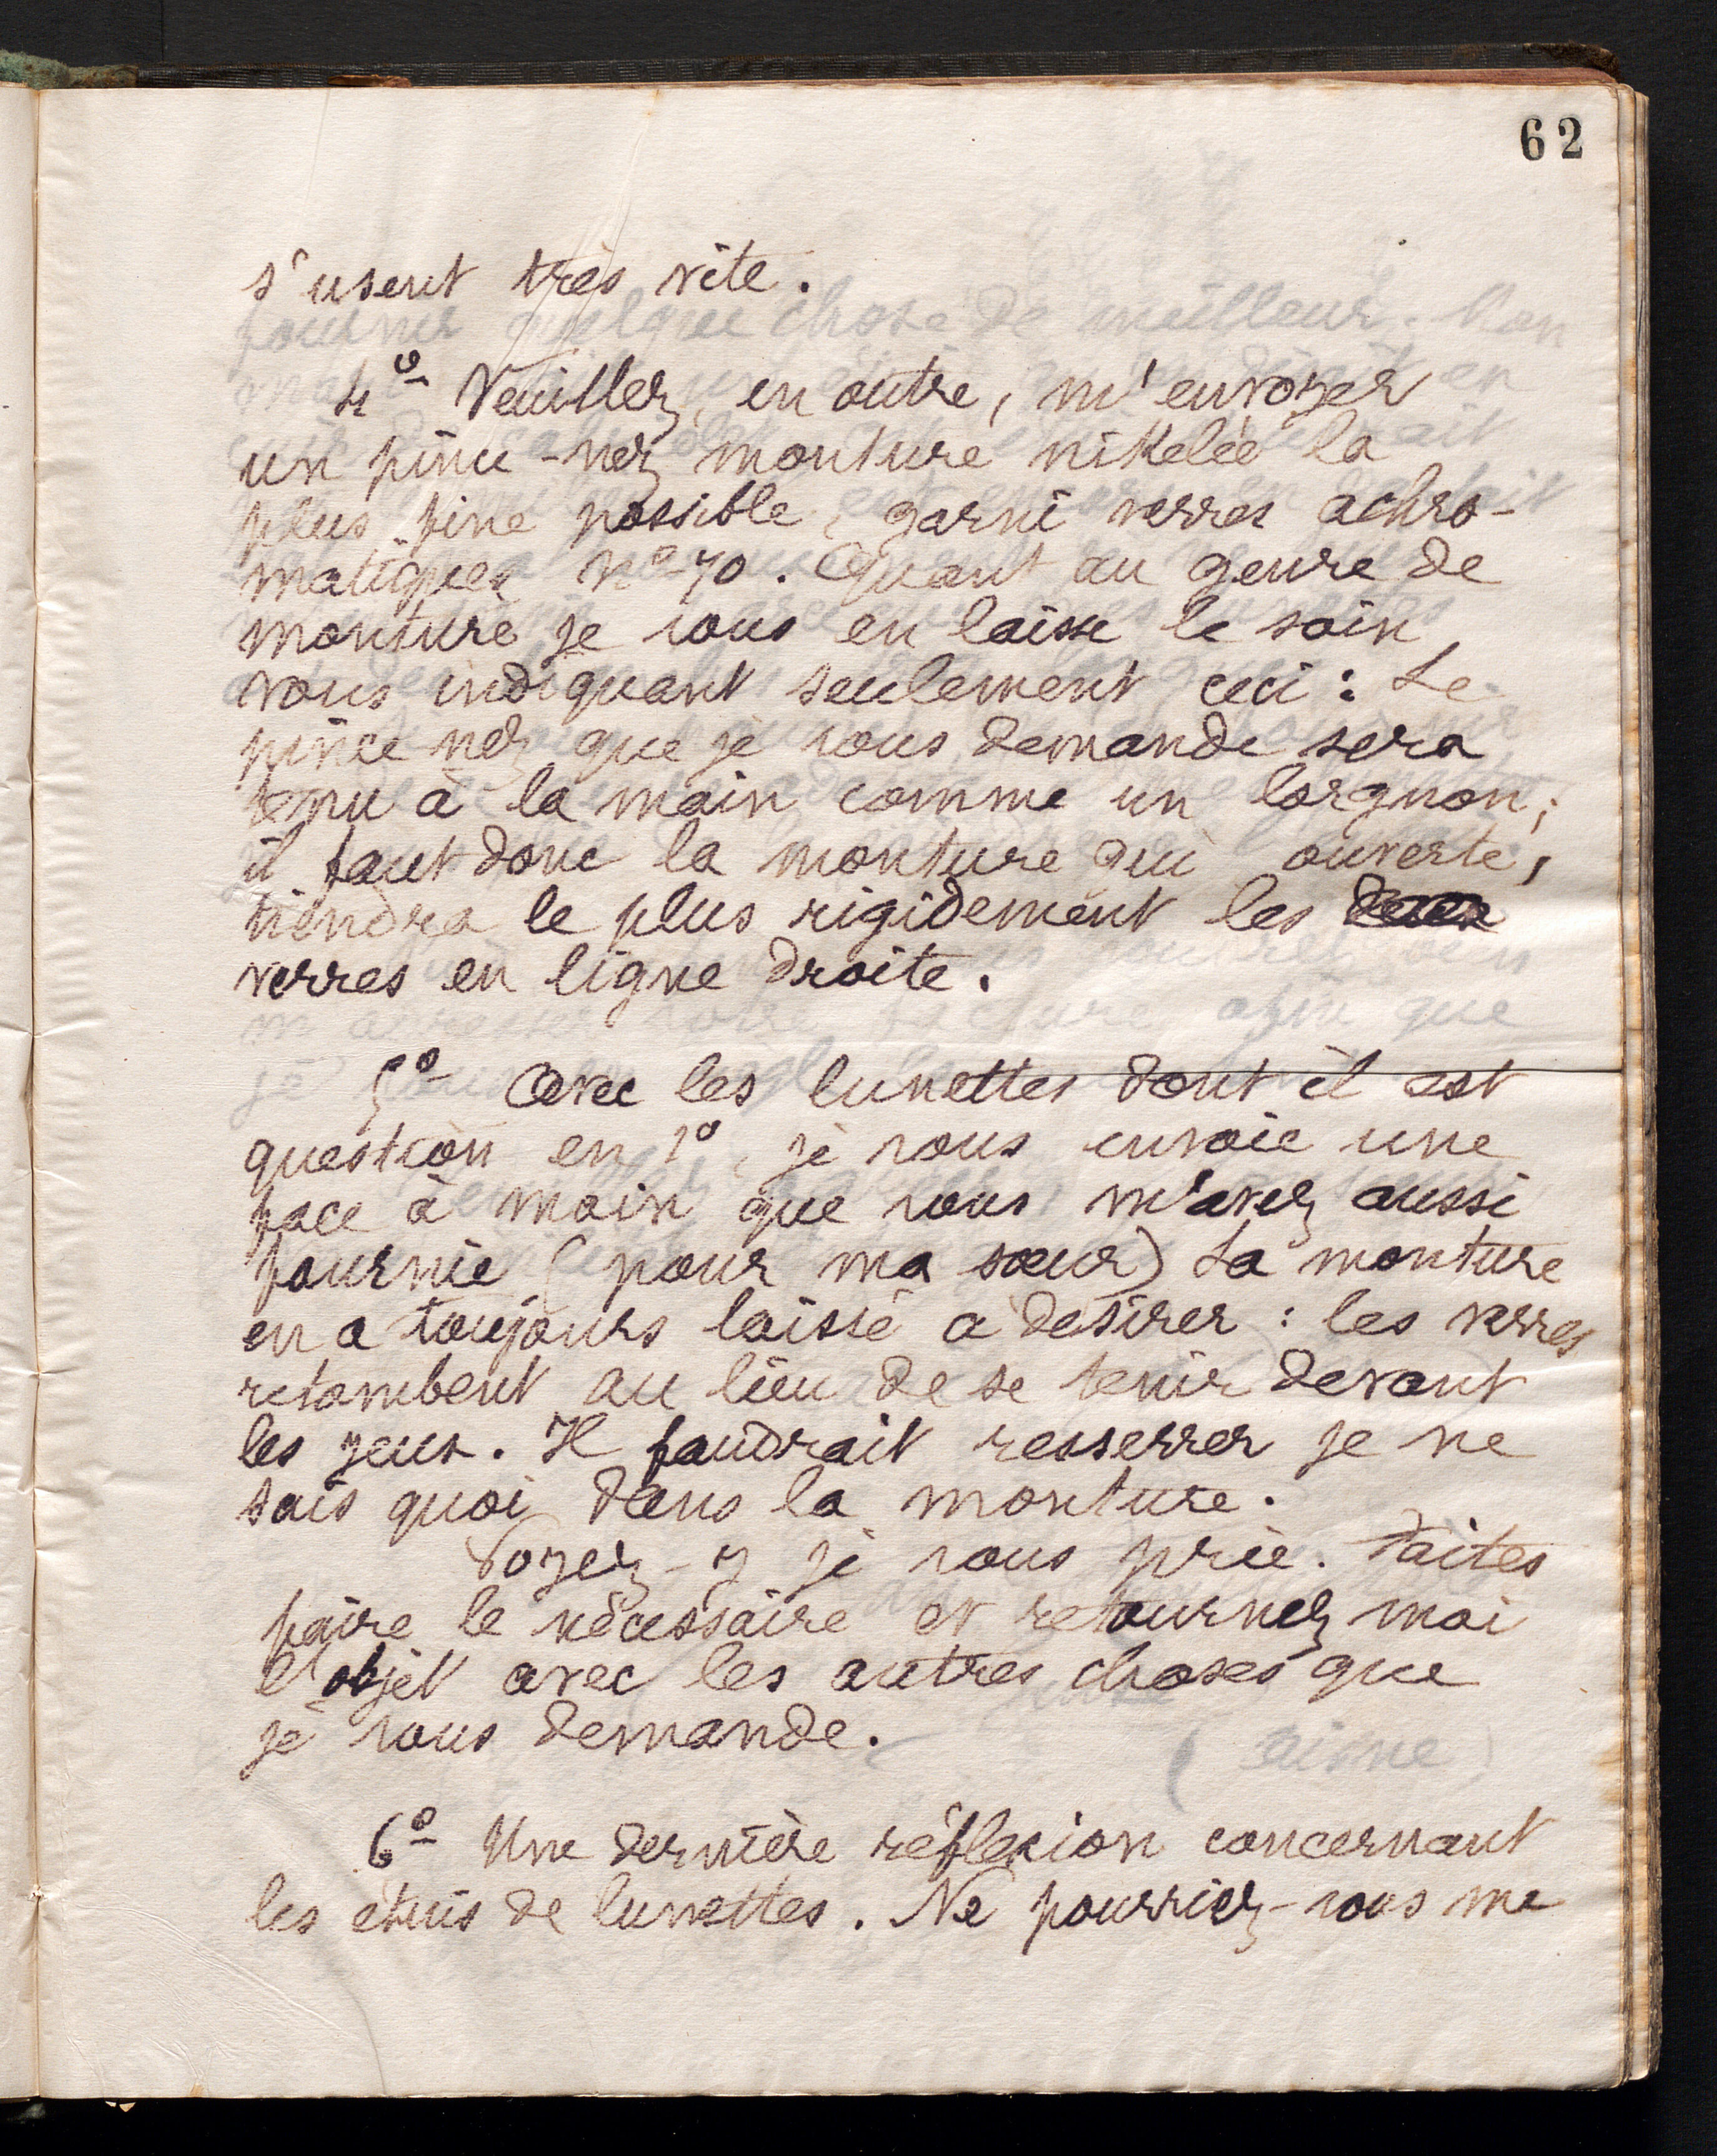 62
s'usent très vite.
4º Veuillez, en outre, m'envoyer
un pince-nez monture nikelée la
plus fine possible, garni verres achro-
matiques nº 70. Quant au genre de
monture je vous en laisse le soin,
vous indiquant seulement ceci : Le
pince nez que je vous demande sera
tenu à la main comme un lorgnon ;
il faut donc la monture qui ouverte,
tiendra le plus rigidement les
verres en ligne droite.
5º Avec les lunettes dont il est
question en 1º, je vous envoie une
face à main que vous m'avez aussi
fournie (pour ma sœur) La monture
en a toujours laissé à desirer : les verres
retombent au lieu de se tenir devant
les yeux. Il faudrait resserrer je ne
sais quoi dans la monture.
Voyez-y je vous prie. Faites
faire le nécessaire et retournez moi
l'objet avec les autres choses que
je vous demande.
6º Une dernière réflexion concernant
les étuis de lunettes. Ne pourriez-vous me